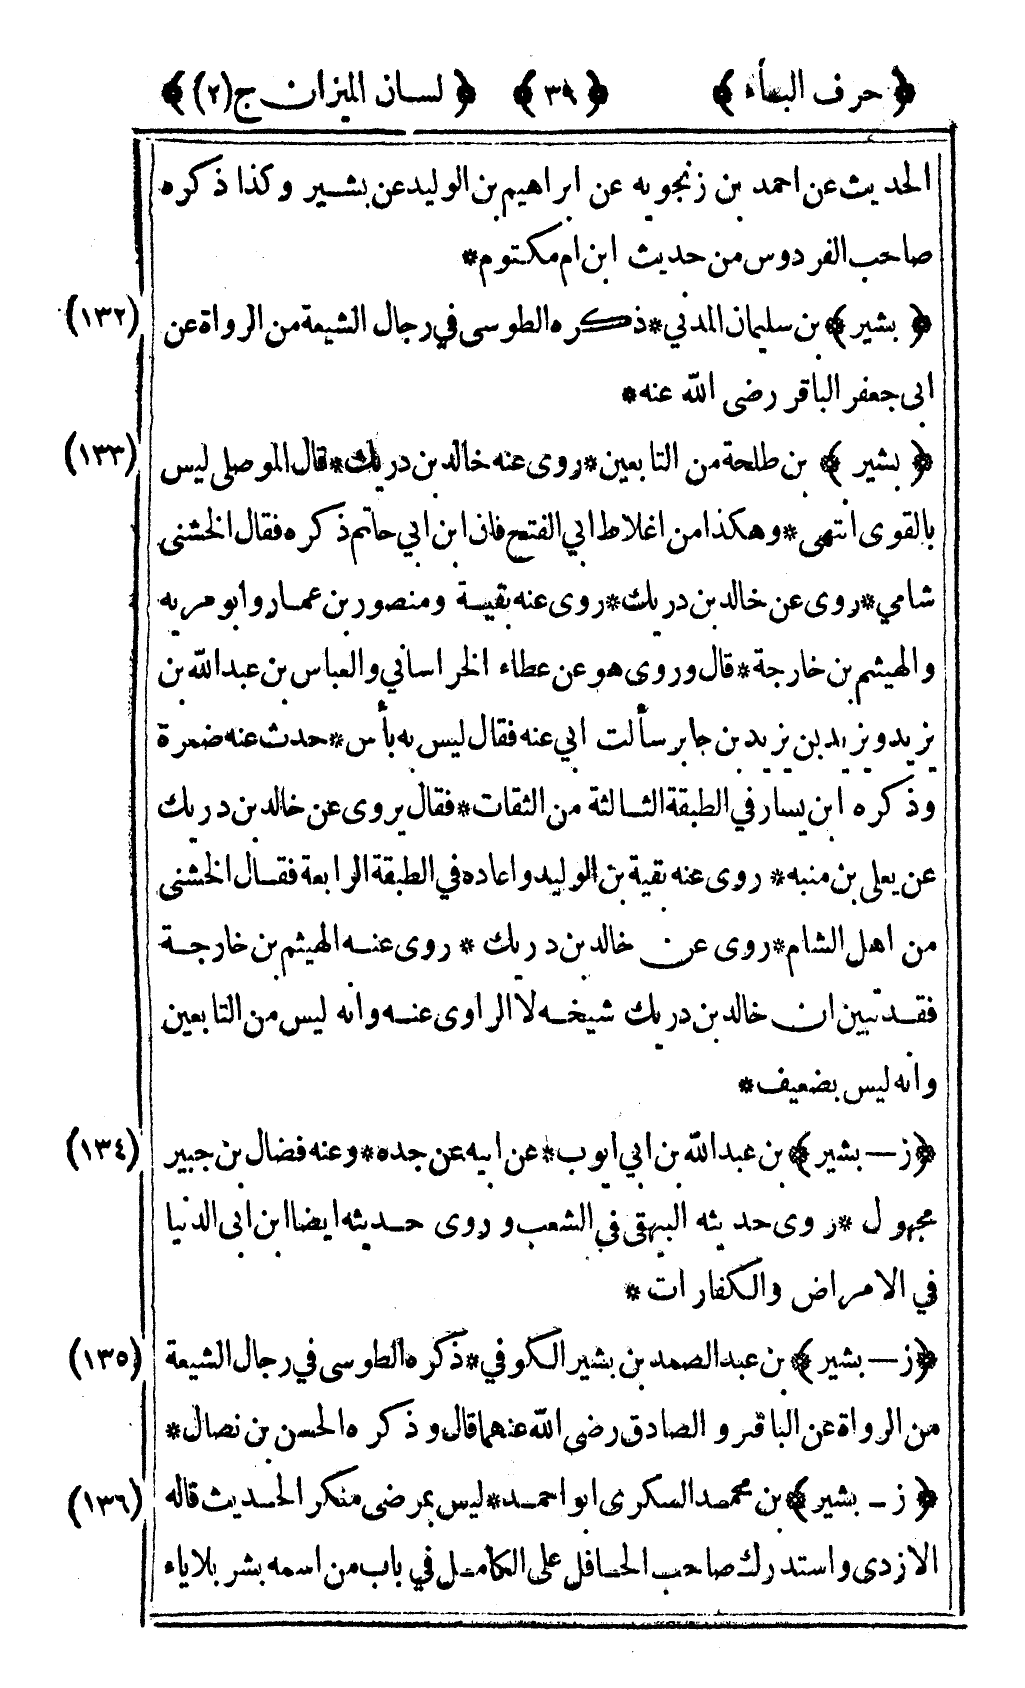 ﴿ حرف الباء ﴾ ﴿ ٣٩ ﴾ ﴿ لسان الميزان ج(٢) ﴾
الحديث عن احمد بن زنجويه عن ابراهيم بن الوليد عن بشير وكذا ذكره
صاحب الفردوس من حديث ابن ام مكتوم*
﴿ بشير ﴾ بن سليمان المدني*ذكره الطوسى في رجال الشيعة من الرواة عن (١٣٢)
ابى جعفر الباقر رضى الله عنه*
﴿ بشير ﴾ بن طلحة من التابعين*روى عنه خالد بن دريك*قال الموصلى ليس (١٣٣)
بالقوى انتهى*وهكذا من اغلاط ابي الفتح فان ابن ابي حاتم ذكره فقال الخشنى
شامي*روى عن خالد بن دريك*روى عنه بقية ومنصور بن عمار وابو مريه
والهيثم بن خارجة*قال وروى هو عن عطاء الخراساني والعباس بن عبد الله بن
يزيد ويزيد بن يزيد بن جابر سألت ابي عنه فقال ليس به بأس*حدث عنه ضمرة
وذكره ابن يسار في الطبقة الثالثة من الثقات*فقال يروى عن خالد بن دريك
عن يعلى بن منبه* روى عنه بقية بن الوليد واعاده في الطبقة الرابعة فقال الخشنى
من اهل الشام*روى عن خالد بن دريك * روى عنه الهيثم بن خارجة
فقد تبين ان خالد بن دريك شيخه لا الراوى عنه وانه ليس من التابعين
وانه ليس بضعيف*
﴿ز— بشير ﴾ بن عبد الله بن ابي ايوب*عن ابيه عن جده*وعنه فضال بن جبير (١٣٤)
مجهول *روى حديثه البيهقى في الشعب وروى حديثه ايضا ابن ابى الدنيا
في الامراض والكفارات*
﴿ز— بشير ﴾ بن عبد الصمد بن بشير الكوفي*ذكره الطوسى في رجال الشيعة (١٣٥)
من الرواة عن الباقر و الصادق رضى الله عنهما قال و ذكره الحسن بن نصال*
﴿ ز ـ بشير ﴾ بن محمد السكرى ابو احمد*ليس بمرضى منكر الحديث قاله (١٣٦)
الازدى واستدرك صاحب الحافل على الكامل في باب من اسمه بشر بلاياء